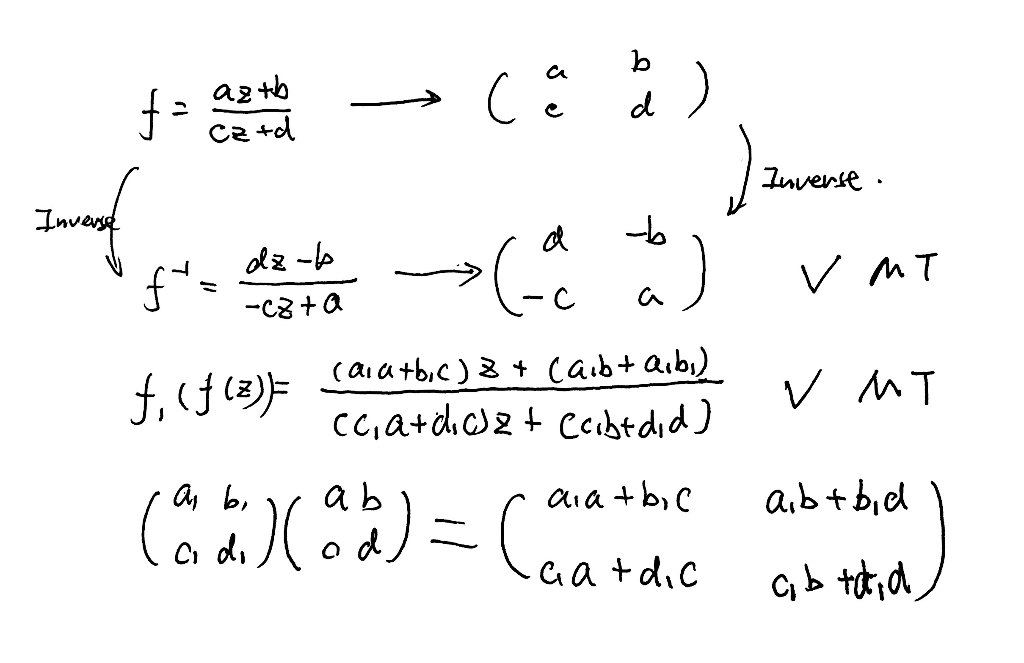 f = (az+b)/(cz+d) ⟶ ( a b ; c d )
Inverse Inverse .
f⁻¹ = (dz-b)/(-cz+a) ⟶ ( d -b ; -c a ) ✓ MT
f₁(f(z)) = ((a₁a+b₁c)z + (a₁b+a₁b₁))/((c₁a+d₁c)z + (c₁b+d₁d)) ✓ MT
( a₁ b₁ ; c₁ d₁ )( a b ; c d ) = ( a₁a+b₁c a₁b+b₁d ; c₁a+d₁c c₁b+d₁d )